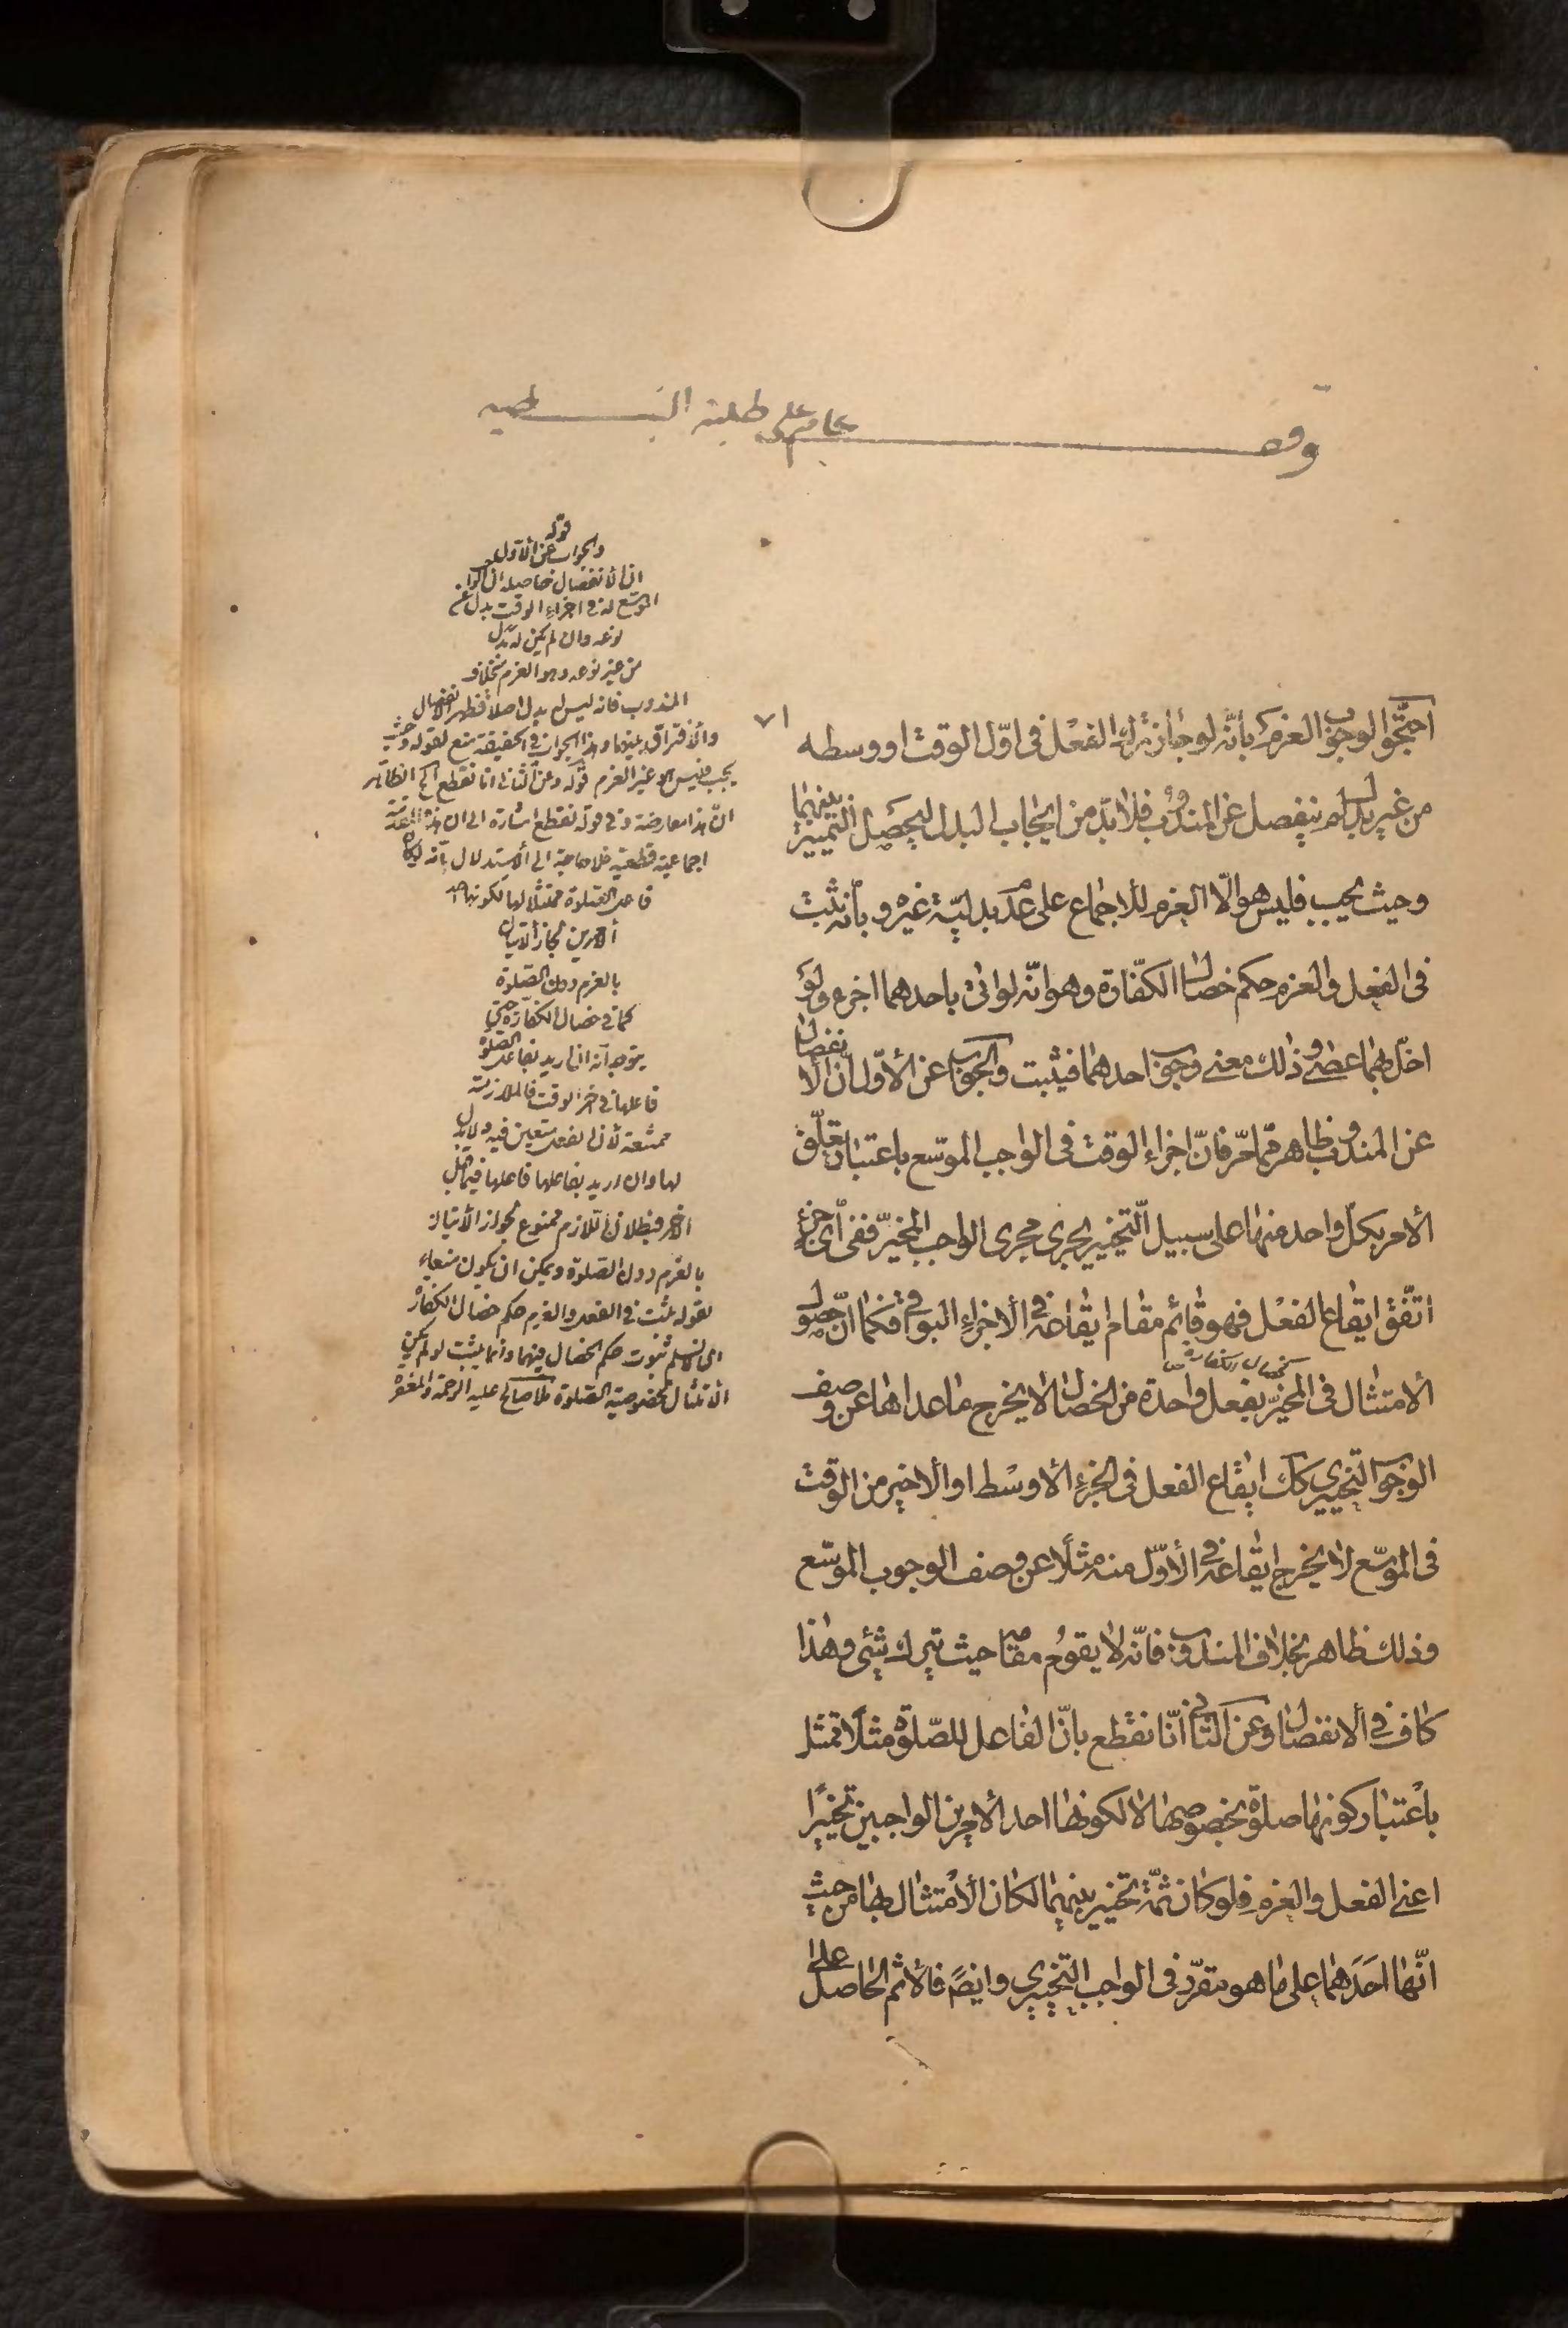 وقف عام على طلبة
٧١
احتجّوا لوجوب العزم بأنّه لو جاز ترك الفعل فى اوّل الوقت او وسطه
من غير بدل لم ينفصل عن المندوب فلا بدّ من ايجاب البدل ليحصل التمييز بينهما
وحيث يجب فليس هو الّا العزم للأجماع على عدم بدليّة غيره وبأنه ثبت
فى الفعل والعزم حكم خصال الكفّارة وهو انّه لو اتى باحدهما اجزء ولو
اخلّ بهما عصى وذلك معنى وجوب احدهما فيثبت والجواب عن الأوّل أن الأنفصال
عن المندوب ظاهر ممّا مرّ فانّ اجزاء الوقت فى الواجب الموسّع باعتبار تعلّق
الأمر بكلّ واحد منها على سبيل التّخيير يجرى مجرى الواجب المخيّر ففى أىّ جزء
اتّفق ايقاع الفعل فهو قائم مقام ايقاعه فى الأجزاء البواقى فكما انّ حصول
الأمتثال فى المخيّر بفعل واحدة من الخصال لا يخرج ما عداها عن وصف
كخصال الكفارة
الوجوب التخييرى كك ايقاع الفعل فى الجزء الأوسط او الأخير من الوقت
فى الموسّع لا يخرج ايقاعه فى الأوّل منه مثلًا عن وصف الوجوب الموسّع
وذلك ظاهر بخلاف المندوب فانّه لا يقوم مقامه حيث يترك شئ وهذا
كاف فى الأنفصال وعن الثانى أنّا نقطع بانّ الفاعل للصّلوة مثلًا ممتثل
باعتبار كونها صلوة بخصوصها لا لكونها احد الأمرين الواجبين تخييرًا
اعنى الفعل والعزم فلو كان ثمّة تخيير بينهما لكان الأمتثال بها من حيث
انّها احَدهما على ما هو مقرّر فى الواجب التخييرى وايضًا فالأثم الحاصل على
قوله
والجواب عن الأول
ان الأنفصال حاصله ان الواجب
الموسّع له فى اجزاء الوقت بدل من
نوعه وان لم يكن له بدل
من غير نوعه وهو العزم بخلاف
المندوب فانه ليس له بدل اصلاً فظهر الأنفصال
والأفتراق بينهما وهذا الجواب فى الحقيقة منع لقوله وحيث
يجب فليس هو غير العزم قوله وعن الثانى انا نقطع الخ الظاهر
انّ هذا معارضة وفى قوله نقطع اشارة الى ان هذه المقدّمة
اجماعية قطعية فلا حاجة الى الأستدلال بأنه لو كان
فاعل الصّلوة ممتثلًا لها لكونها احد
الأمرين لجاز الأتيان
بالعزم دون الصّلوة
كما فى خصال الكفّارة حتى
يتوجه أنه ان اريد بفاعل الصّلوة
فاعلها فى اخر الوقت فالملازمة
ممتنعة لأن الفعل متعين فيه ولا بدل
لها وان اريد بفاعلها فاعلها فيما قبل
الأخر فبطلان اللّازم ممنوع لجواز الأتيان
بالعزم دون الصّلوة ويمكن ان يكون منعا
لقوله ثبت فى الفعل والعزم حكم خصال الكفارة
اى لا نسلم ثبوت حكم الخصال فيهما وانما يثبت لو لم يكن
الأمتثال بخصوصية الصّلوة ملا صالح عليه الرحمة والمغفرة